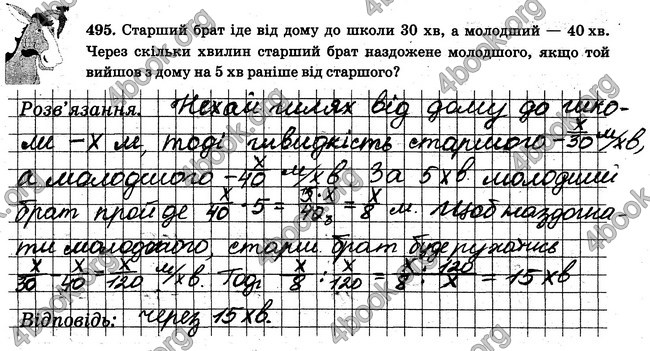 495. Старший брат іде від дому до школи 30 хв, а молодший — 40 хв.
Через скільки хвилин старший брат наздожене молодшого, якщо той
вийшов з дому на 5 хв раніше від старшого?
Розв'язання. Нехай шлях від дому до шко-
ли – x м, тоді швидкість старшого – x/30 м/хв,
а молодшого – x/40 м/хв. За 5 хв молодший
брат пройде x/40 · 5 = 5·x/40 = x/8 м. Щоб наздогна-
ти молодшого, старш. брат буде рухатись
x/30 – x/40 = x/120 м/хв. Тоді x/8 : x/120 = x/8 · 120/x = 15 хв
Відповідь: через 15 хв.
4book.org